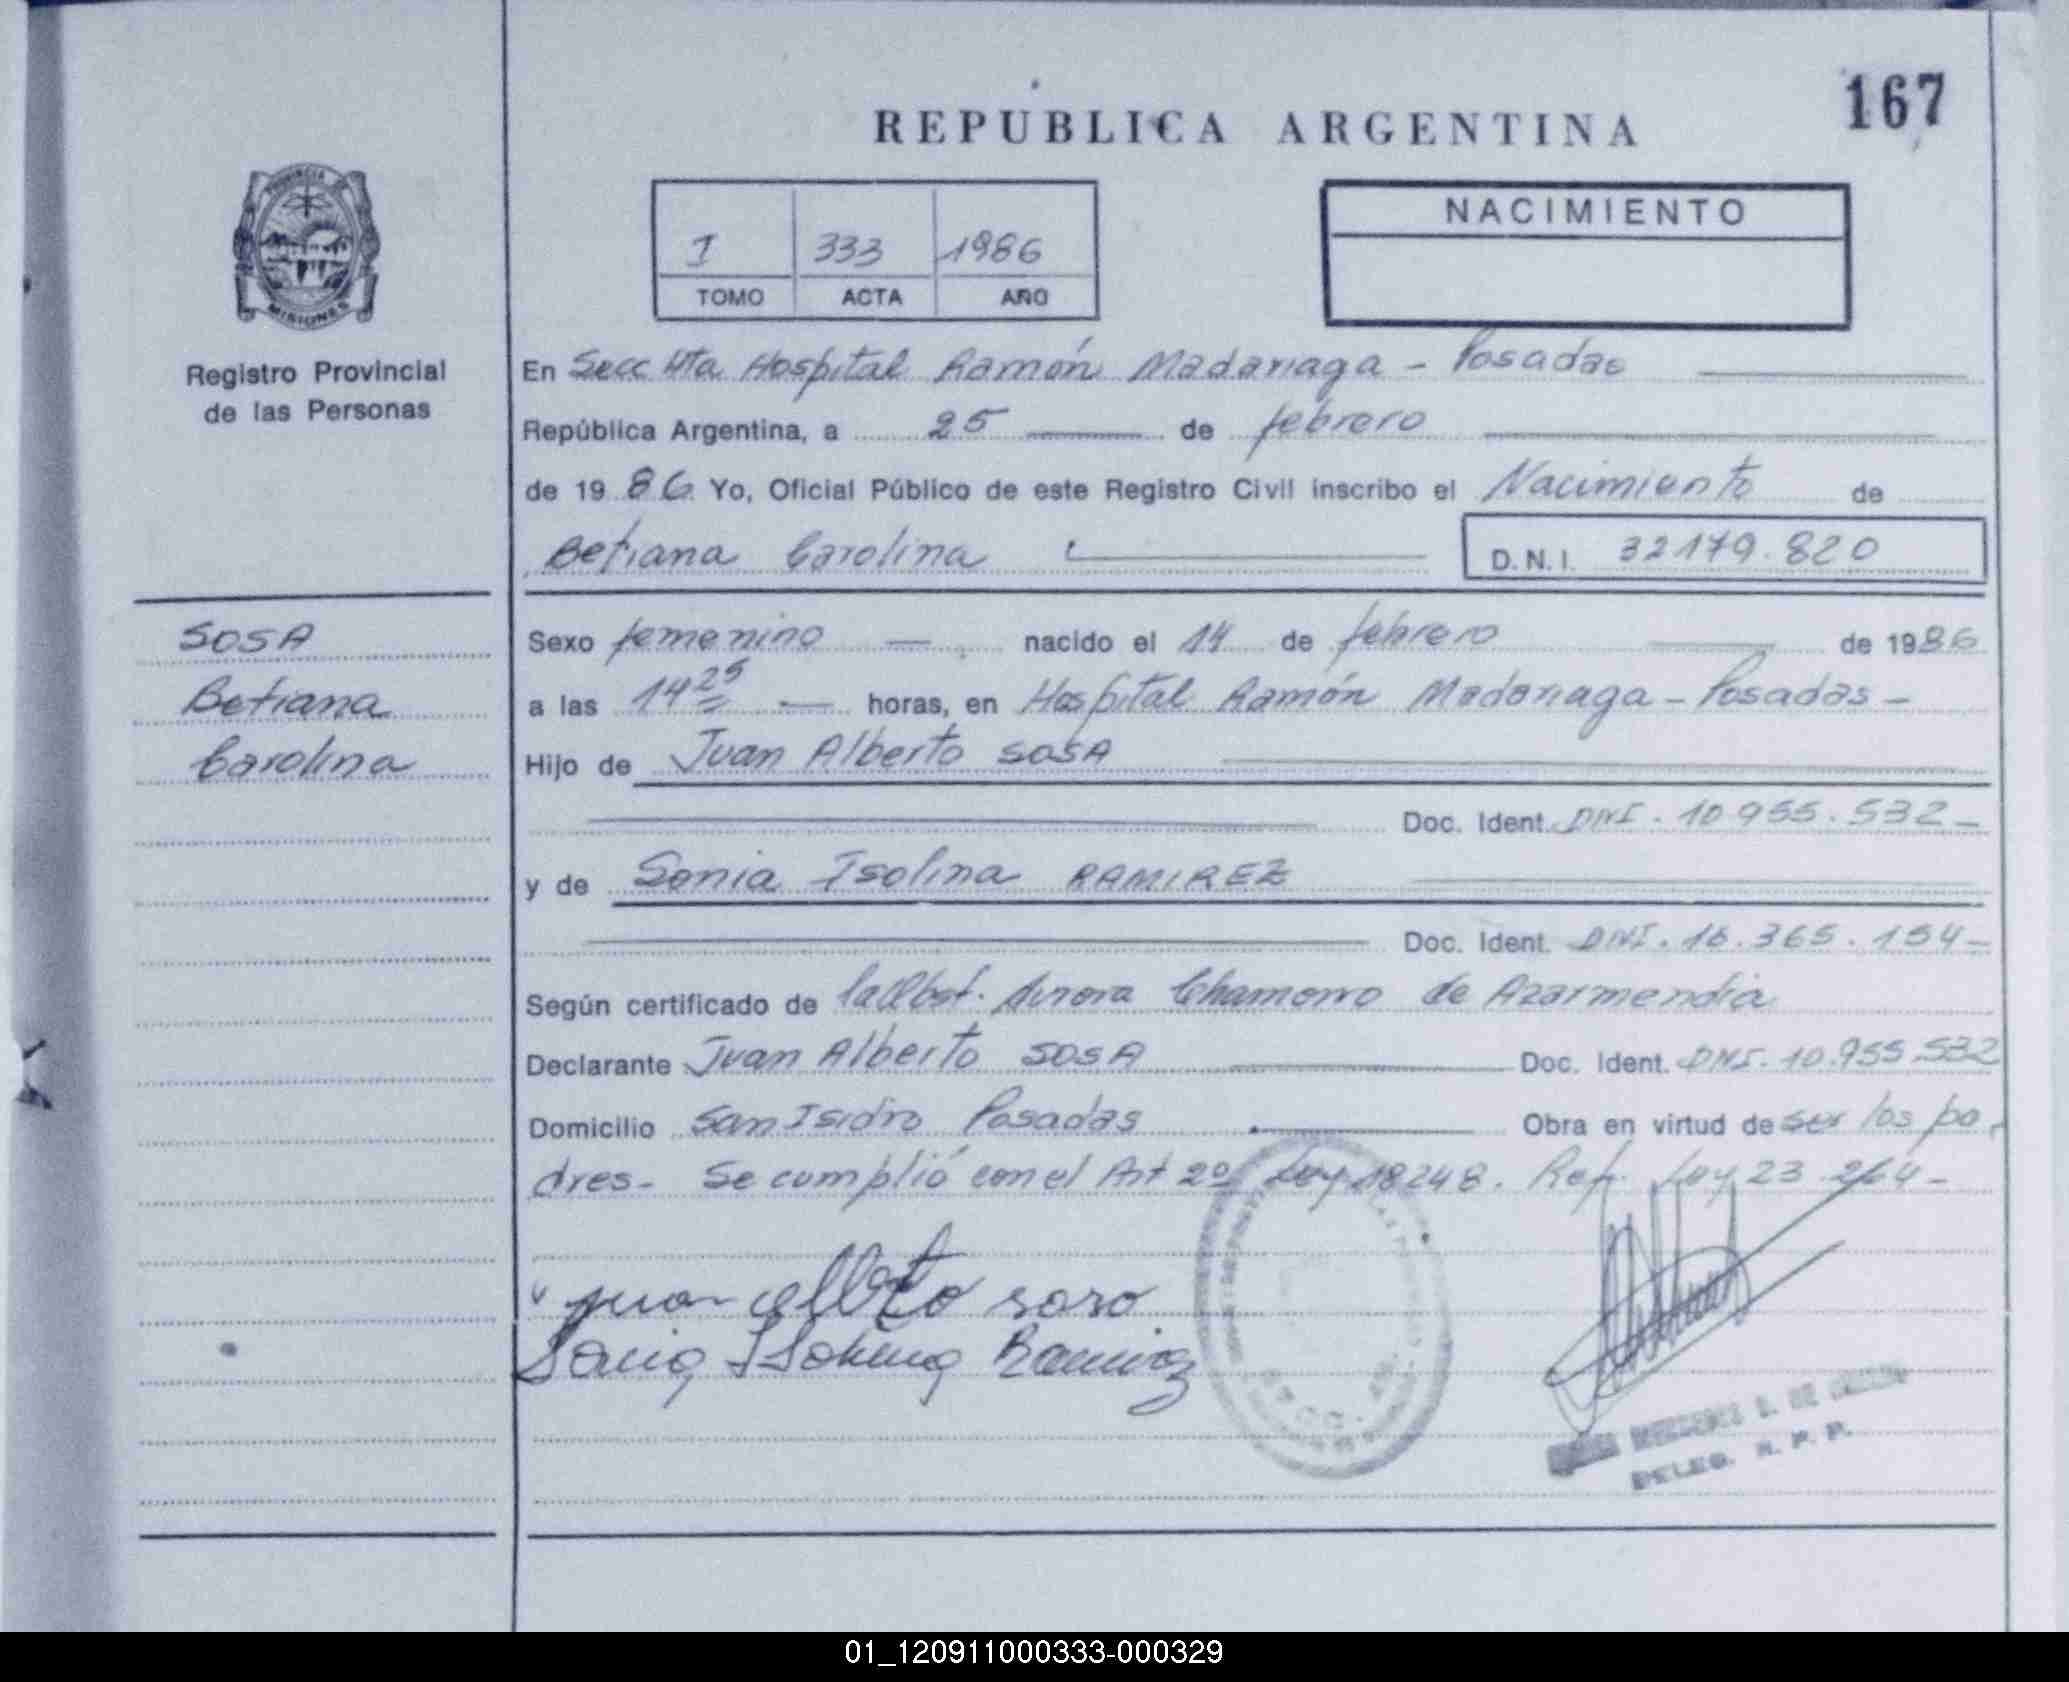 167
REPUBLICA ARGENTINA
PROVINCIA DE
MISIONES
Registro Provincial
de las Personas
I 333 1986
TOMO ACTA AÑO
NACIMIENTO
En Secc 4ta Hospital Ramón Madariaga - Posadas
República Argentina, a 25 de febrero
de 1986. Yo, Oficial Público de este Registro Civil inscribo el Nacimiento de
Betiana Carolina D.N.I. 32179.820
SOSA
Betiana
Carolina
Sexo femenino nacido el 14 de febrero de 1986
a las 14 25 horas, en Hospital Ramón Madariaga - Posadas -
Hijo de Juan Alberto SOSA
Doc. Ident. DNI. 10955.532 -
y de Sonia Isolina RAMIREZ
Doc. Ident. DNI. 16.365.154 -
Según certificado de la Obst. Aurora Chamorro de Azarmendia
Declarante Juan Alberto SOSA Doc. Ident. DNI. 10.955.532
Domicilio San Isidro Posadas Obra en virtud de ser los pa-
dres - Se cumplió con el Art 2º Ley 18248. Ref. Ley 23.264 -
juan alberto soso
Sonia Isolina Ramirez
DELEG. R. P. P.
01_120911000333-000329